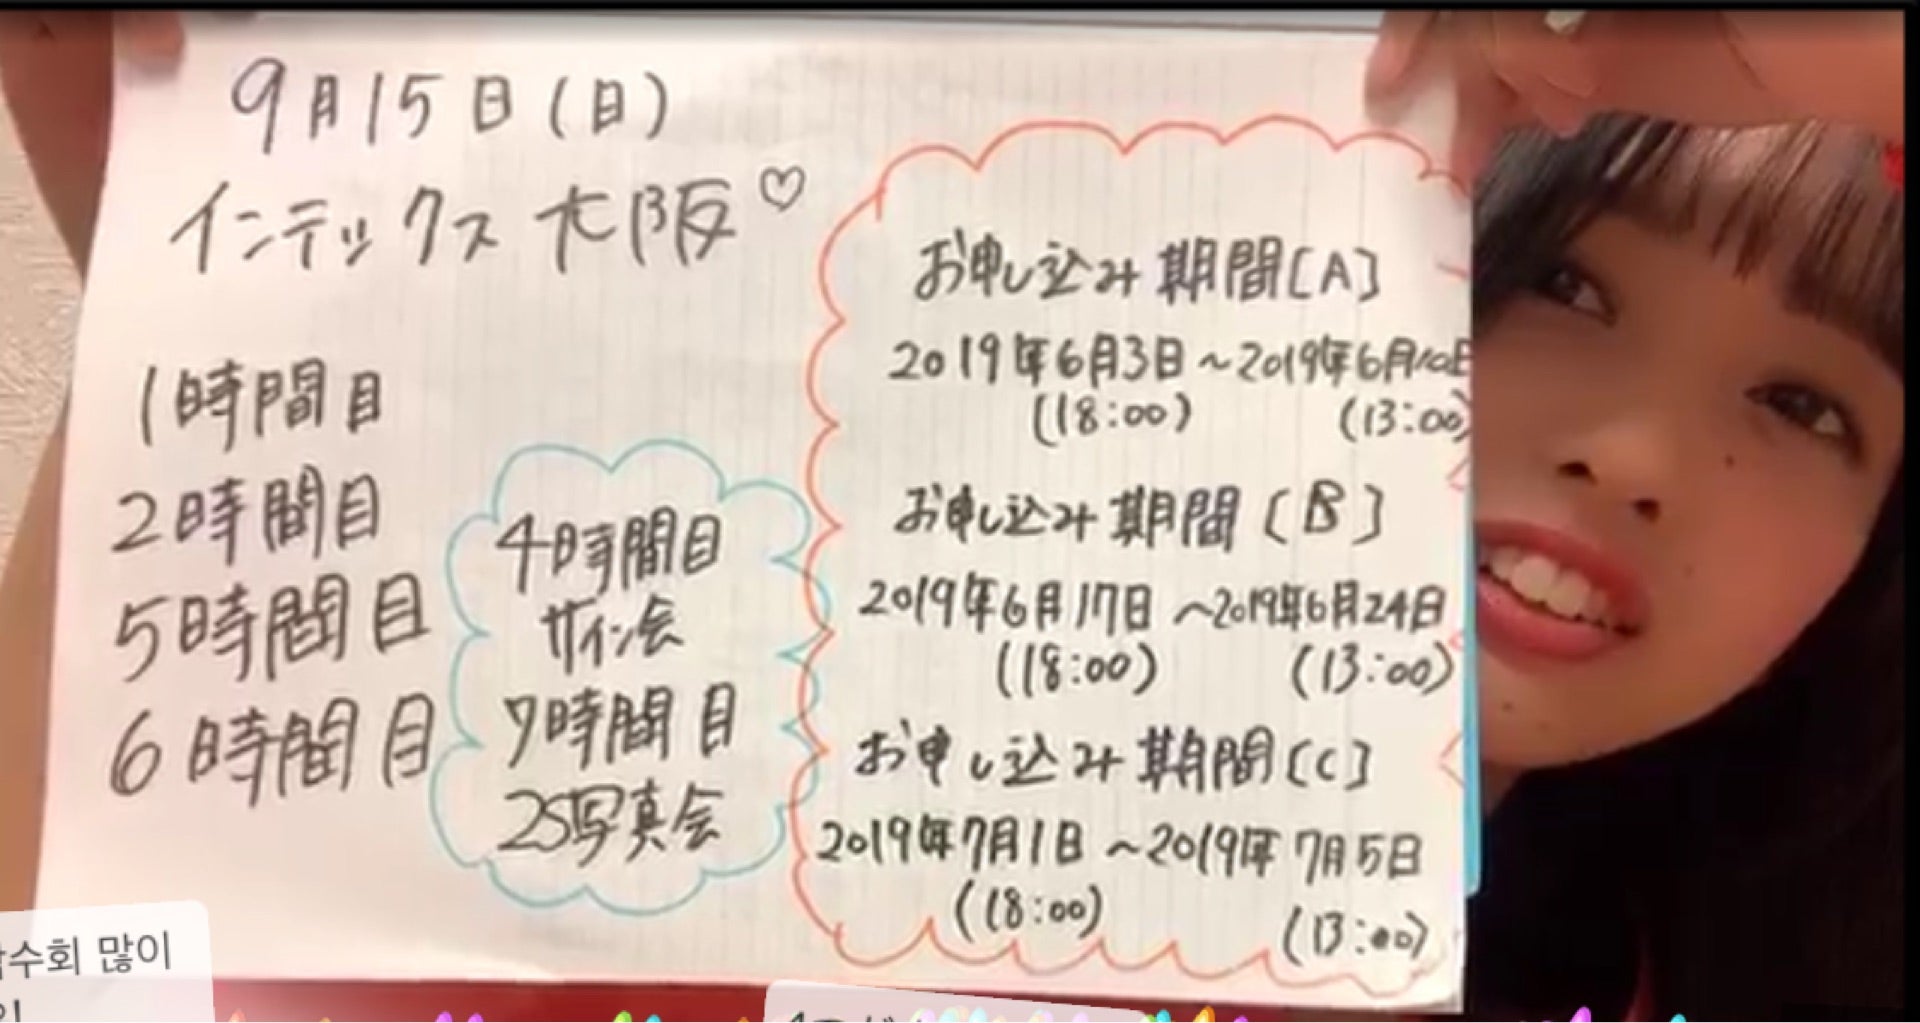 9月15日(日)
インテックス大阪♡
1時間目
2時間目
5時間目
6時間目
4時間目
サイン会
7時間目
2S写真会
お申し込み期間[A]
2019年6月3日～2019年6月10日
(18:00) (13:00)
お申し込み期間[B]
2019年6月17日～2019年6月24日
(18:00) (13:00)
お申し込み期間[C]
2019年7月1日～2019年7月5日
(18:00) (13:00)
수회 많이